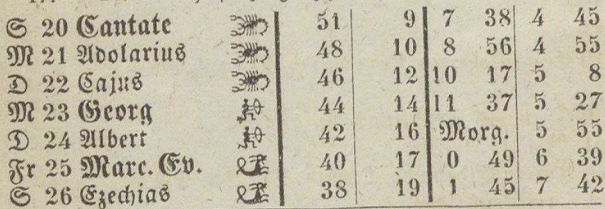 S 20 Cantate 51 9 7 38 4 45
M 21 Adolarius 48 10 8 56 4 55
D 22 Cajus 46 12 10 17 5 8
M 23 Georg 44 14 11 37 5 27
D 24 Albert 42 16 Morg. 5 55
Fr 25 Marc. Ev. 40 17 0 49 6 39
S 26 Ezechias 38 19 1 45 7 42